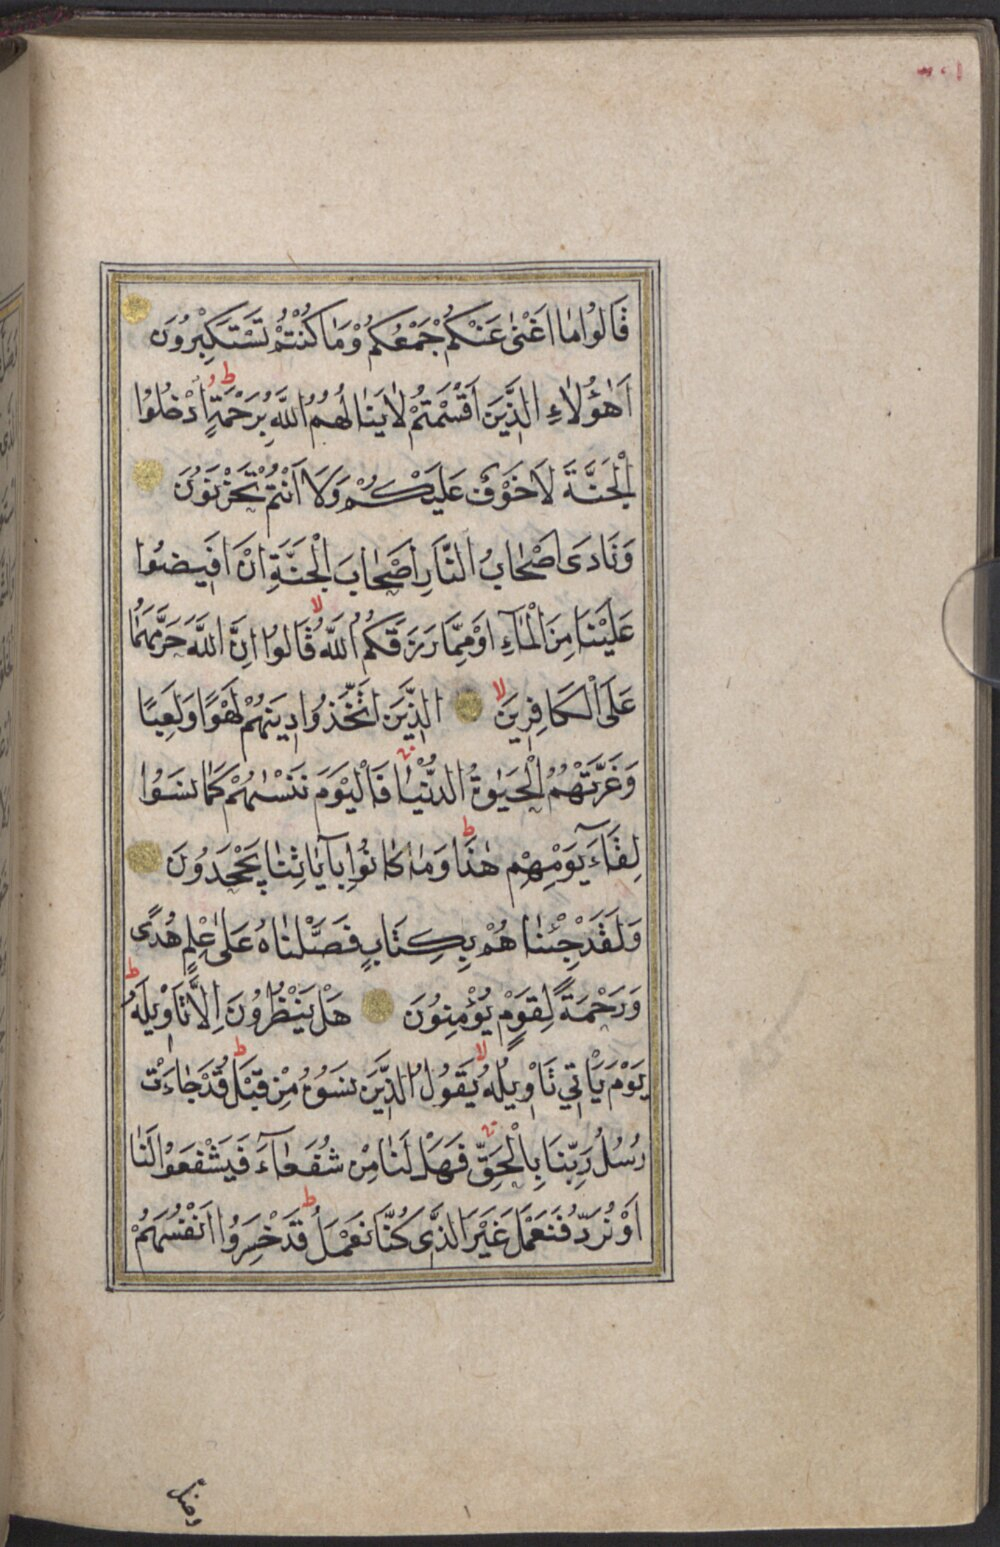 قَالُوا مَا اَغْنٰى عَنْكُمْ جَمْعُكُمْ وَمَا كُنْتُمْ تَسْتَكْبِرُونَ
اَهٰؤُلَاءِ الَّذِينَ اَقْسَمْتُمْ لَا يَنَالُهُمُ اللّٰهُ بِرَحْمَةٍ ط اُدْخُلُوا
الْجَنَّةَ لَا خَوْفٌ عَلَيْكُمْ وَلَا اَنْتُمْ تَحْزَنُونَ
وَنَادَى اَصْحَابُ النَّارِ اَصْحَابَ الْجَنَّةِ اَنْ اَفِيضُوا
عَلَيْنَا مِنَ الْمَآءِ اَوْ مِمَّا رَزَقَكُمُ اللّٰهُ لا قَالُوا اِنَّ اللّٰهَ حَرَّمَهُمَا
عَلَى الْكَافِرِينَ لا الَّذِينَ اتَّخَذُوا دِينَهُمْ لَهْوًا وَلَعِبًا
وَغَرَّتْهُمُ الْحَيٰوةُ الدُّنْيَا فَالْيَوْمَ نَنْسٰيهُمْ كَمَا نَسُوا
لِقَآءَ يَوْمِهِمْ هٰذَا ط وَمَا كَانُوا بِاٰيَاتِنَا يَجْحَدُونَ
وَلَقَدْ جِئْنَاهُمْ بِكِتَابٍ فَصَّلْنَاهُ عَلٰى عِلْمٍ هُدًى
وَرَحْمَةً لِقَوْمٍ يُؤْمِنُونَ هَلْ يَنْظُرُونَ اِلَّا تَاْوِيلَهُ ط
يَوْمَ يَاْتِي تَاْوِيلُهُ لا يَقُولُ الَّذِينَ نَسُوهُ مِنْ قَبْلُ ط قَدْ جَاءَتْ
رُسُلُ رَبِّنَا بِالْحَقِّ فَهَلْ لَنَا مِنْ شُفَعَآءَ فَيَشْفَعُوا لَنَا
اَوْ نُرَدُّ فَنَعْمَلَ غَيْرَ الَّذِى كُنَّا نَعْمَلُ ط قَدْ خَسِرُوا اَنْفُسَهُمْ
وضل